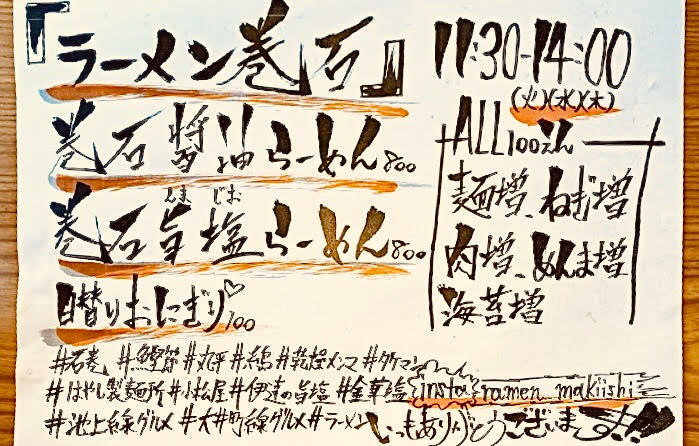 『ラーメン巻石』
11:30-14:00
(火)(水)(木)
巻石醤油らーめん800
んま じお
巻石旨塩らーめん800
日替りおにぎり♡100
ALL100えん
麺増、ねぎ増
肉増、めんま増
海苔増
#石巻 #鰹節 #丸平 #糸島 #乾燥メンマ #タケマン
#はやし製麺所 #小松屋 #伊達の旨塩 #金華塩 insta ramen_makiishi
#池上線グルメ #大井町線グルメ #ラーメン いつもありがとうございます!!